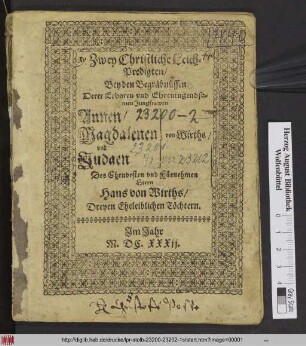 Zwey Christliche Leich-
Predigten/
Bey den Begräbnüssen
Derer Erbaren und Ehrentugendsa-
men Jungfrawen
Annen/ 23200-2
Magdalenen/ von Wirths/
und 23201
Judaen 23202
Des Ehrvesten und Fürnehmen
Herrn
Hans von Wirths/
Dreyen Eheleiblichen Töchtern.
Im Jahr
M. DC. XXXij.
Herzog August Bibliothek
Wolfenbüttel
http://diglib.hab.de/drucke/lpr-stolb-23200-23202-1s/start.htm?image=00001